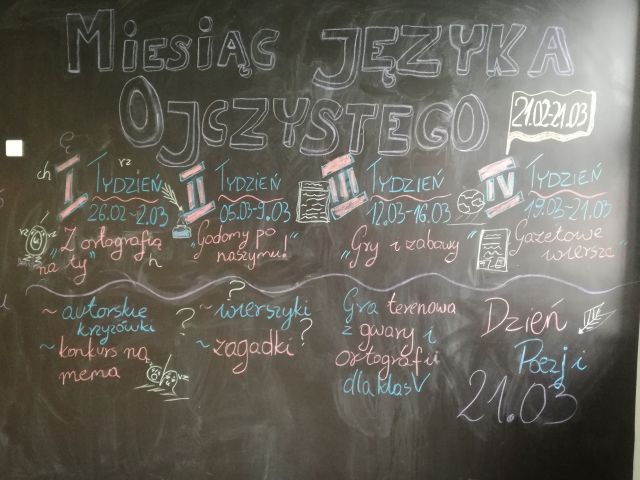 MIESIĄC JĘZYKA
OJCZYSTEGO
21.02-21.03
ę
ch
rz
I TYDZIEŃ
26.02-2.03
"Z ortografią
na ty"
II TYDZIEŃ
05.03-9.03
"Godomy po
naszymu!"
III TYDZIEŃ
12.03-16.03
"Gry i zabawy"
IV TYDZIEŃ
19.03-21.03
Gazetowe
wiersze"
~ autorskie
krzyżówki
~ konkurs na
mema
~ wierszyki
~ zagadki
? ? ?
Gra terenowa
z gwary i
ortografii
dla klas V
Dzień
Poezji
21.03